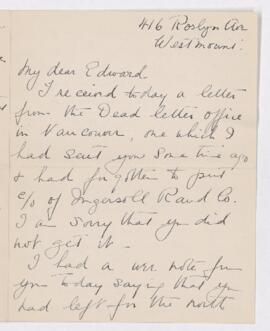 416 Roslyn Av
Westmount.
My dear Edward
I receivd today a letter
from the Dead letter office
in Vancouver, one which I
had sent you some time ago
& had forgotten to put
c/o of Ingersoll Rand Co.
I am sorry that you did
not get it.
I had a note from
you today saying that you
had left for the north